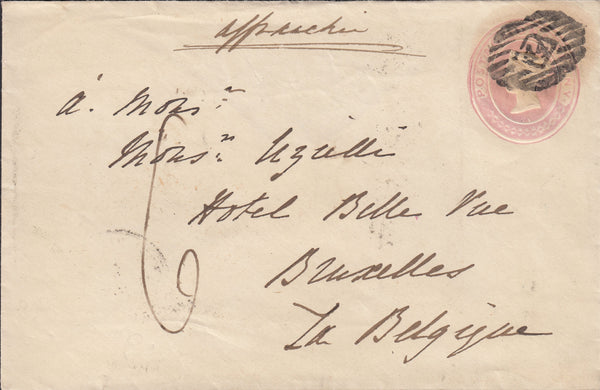 affranchie
à. Mons.r
Mons.r Uzielli
Hotel Belle Vue
Bruxelles
La Belgique
6
PO